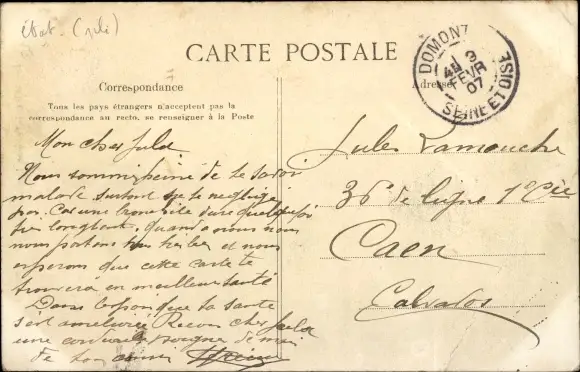 état. (pli)
CARTE POSTALE
Correspondance
Tous les pays étrangers n'acceptent pas la
correspondance au recto, se renseigner à la Poste
Adresse
DOMONT
3
FEVR
07
SEINE ET OISE
Mon cher Jules
Nous sommes peine de te savoir
malade surtout ne te neglige
pas. Car une bronchite dure quelquefois
très longtemps. Quand a nous nous
nous portons très bien et nous
esperons que cette carte te
trouvera en meilleur santé
Dans l'espoir que ta santé
s'est ameliorée Recois cher Jules
une cordiale poignée de main
de ton ami
Jules Lamouche
36e de ligne 1e Cie
Caen
Calvados